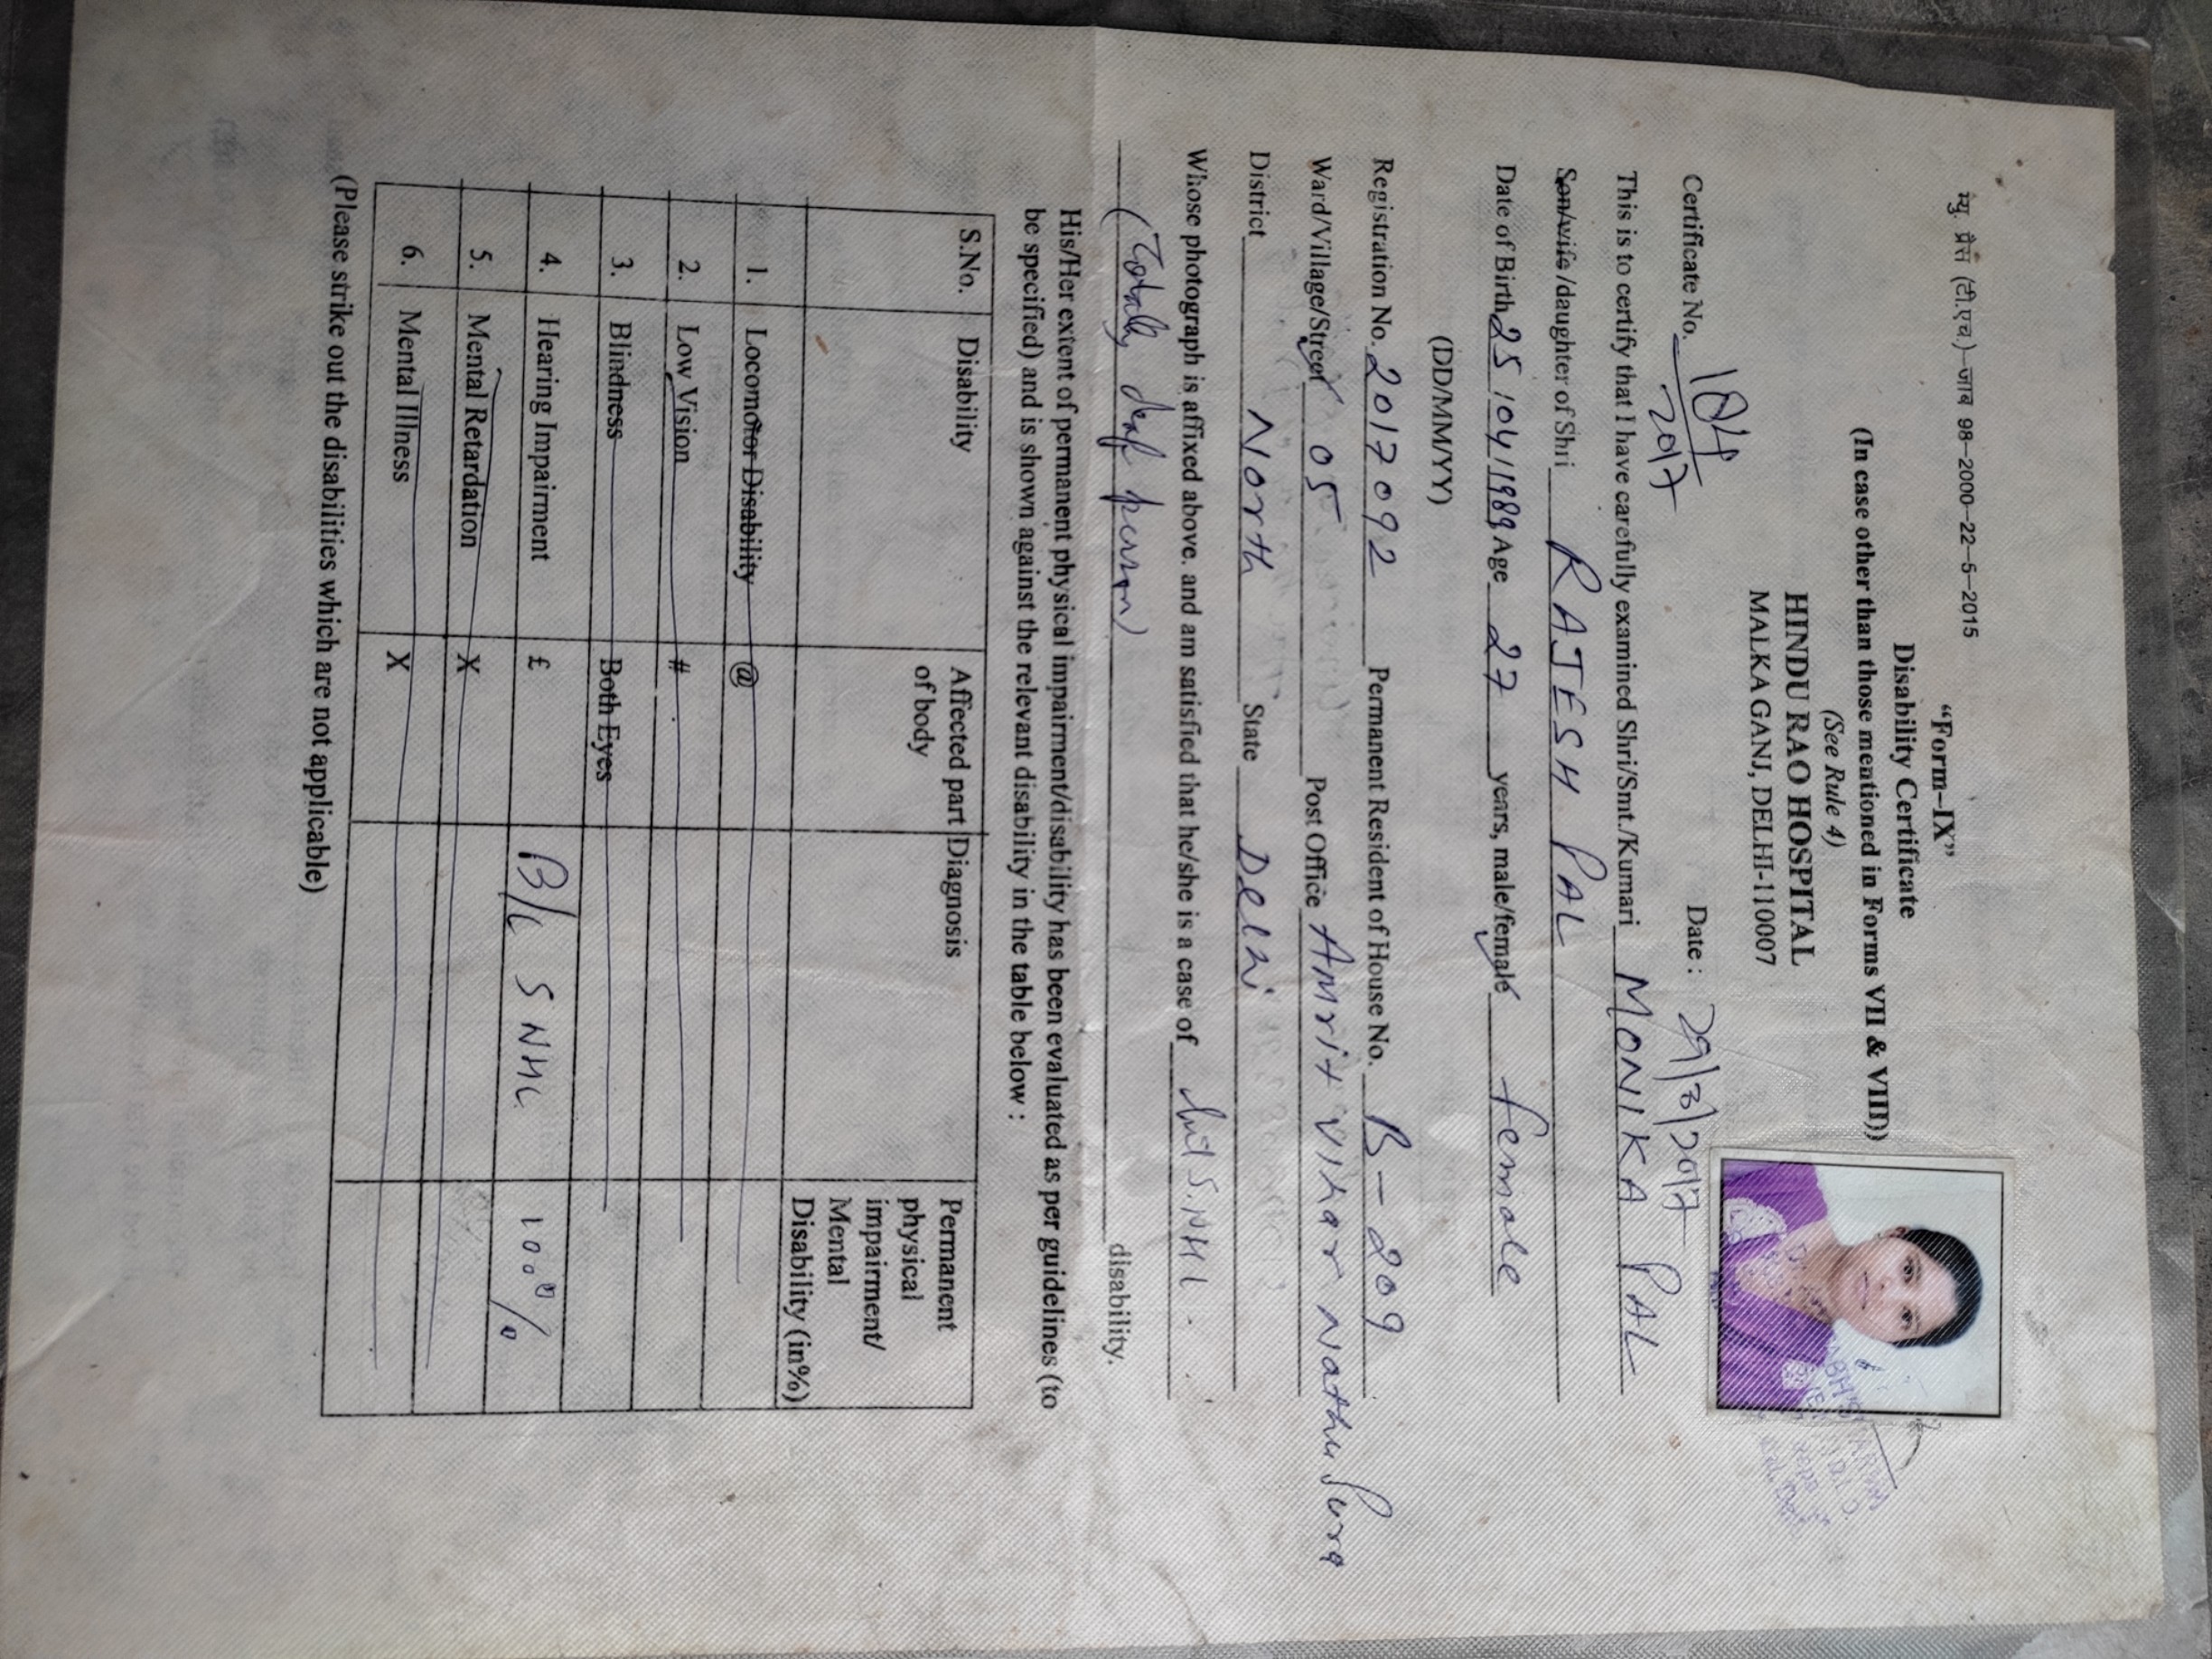 न्यू प्रैस (टी.एच.)–जाब 98–2000–22–5–2015
“Form–IX”
Disability Certificate
(In case other than those mentioned in Forms VII & VIII))
(See Rule 4)
HINDU RAO HOSPITAL
MALKA GANJ, DELHI-110007
Certificate No. 184/2017 Date : 29/3/2017
This is to certify that I have carefully examined Shri/Smt./Kumari MONIKA PAL
Son/wife/daughter of Shri RAJESH PAL
Date of Birth 25/04/1989 Age 27 years, male/female female
(DD/MM/YY)
Registration No. 2017092 Permanent Resident of House No. B-209
Ward/Village/Street 05 Post Office Amrit Vihar Nathu Pura
District North State Delhi
Whose photograph is affixed above. and am satisfied that he/she is a case of S.NHL
(Totally deaf person) disability.
His/Her extent of permanent physical impairment/disability has been evaluated as per guidelines (to
be specified) and is shown against the relevant disability in the table below :
S.No. Disability Affected part of body Diagnosis Permanent physical impairment/ Mental Disability (in%)
1. Locomotor Disability @
2. Low Vision #
3. Blindness Both Eyes
4. Hearing Impairment £ B/L SNHL 100%
5. Mental Retardation X
6. Mental Illness X
(Please strike out the disabilities which are not applicable)